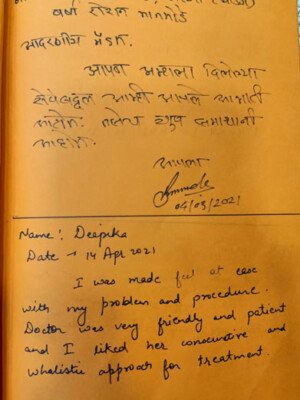 वर्षा रोशन मानमोडे
आदरणीय मॅडम.
आपण आम्हाला दिलेल्या
सेवेबद्दल आम्ही आपले आभारी
आहोत. तसेच खुप समाधानी
आहोत.
आपला
04/03/2021
Name: Deepika
Date → 14 Apr 2021
I was made feel at ease
with my problem and procedure.
Doctor was very friendly and patient
and I liked her conservative and
whalistic approach for treatment.